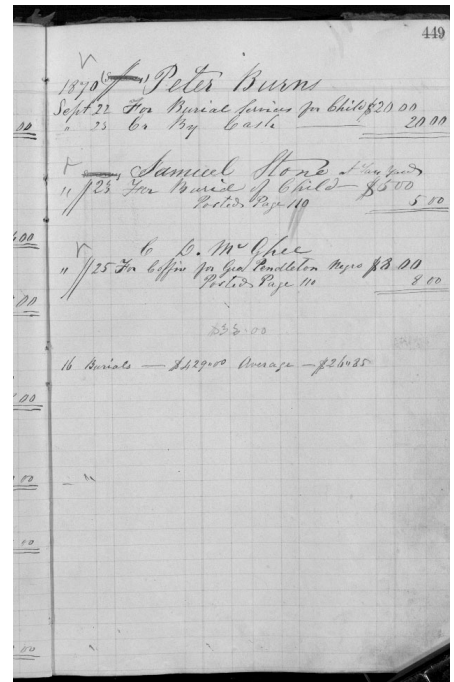 449
1870 Peter Burns
Sept 22 For Burial Services for Child $20 00
" 23 Cr By Cash 20 00
Samuel Stone
" 23 For Burial of Child $5 00
Posted Page 110 5 00
C. D. McGhee
" 25 For Coffin for Geo Pendleton Negro $8.00
Posted Page 110 8 00
$33.00
16 Burials — $429.00 Average — $26.85